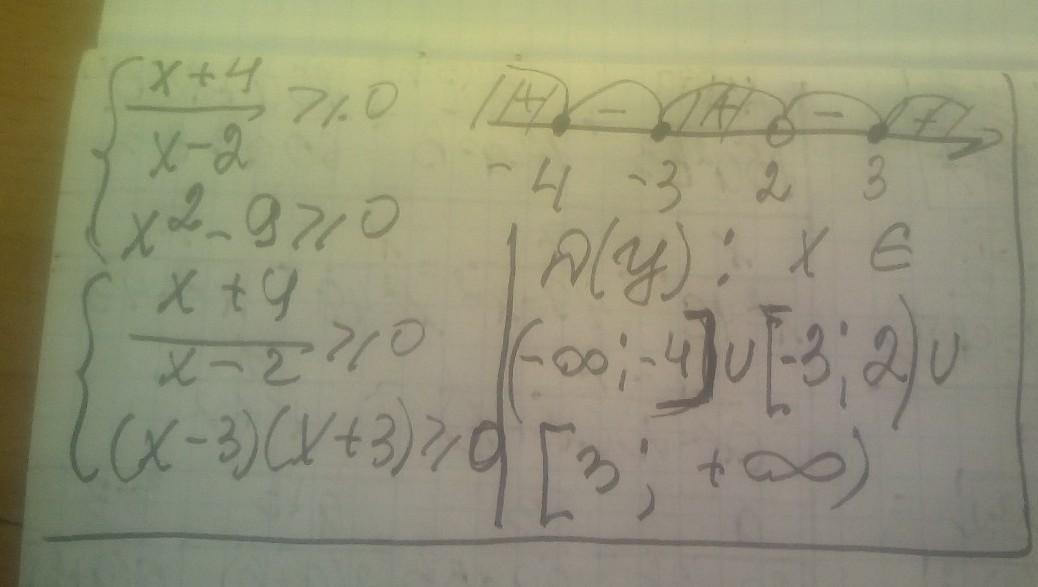 x+4
x-2
⩾0
x²-9⩾0
x+4
x-2
⩾0
(x-3)(x+3)⩾0
+ - + - +
-4 -3 2 3
D(y): x ∈
(-∞;-4]∪[-3;2)∪
[3; +∞)